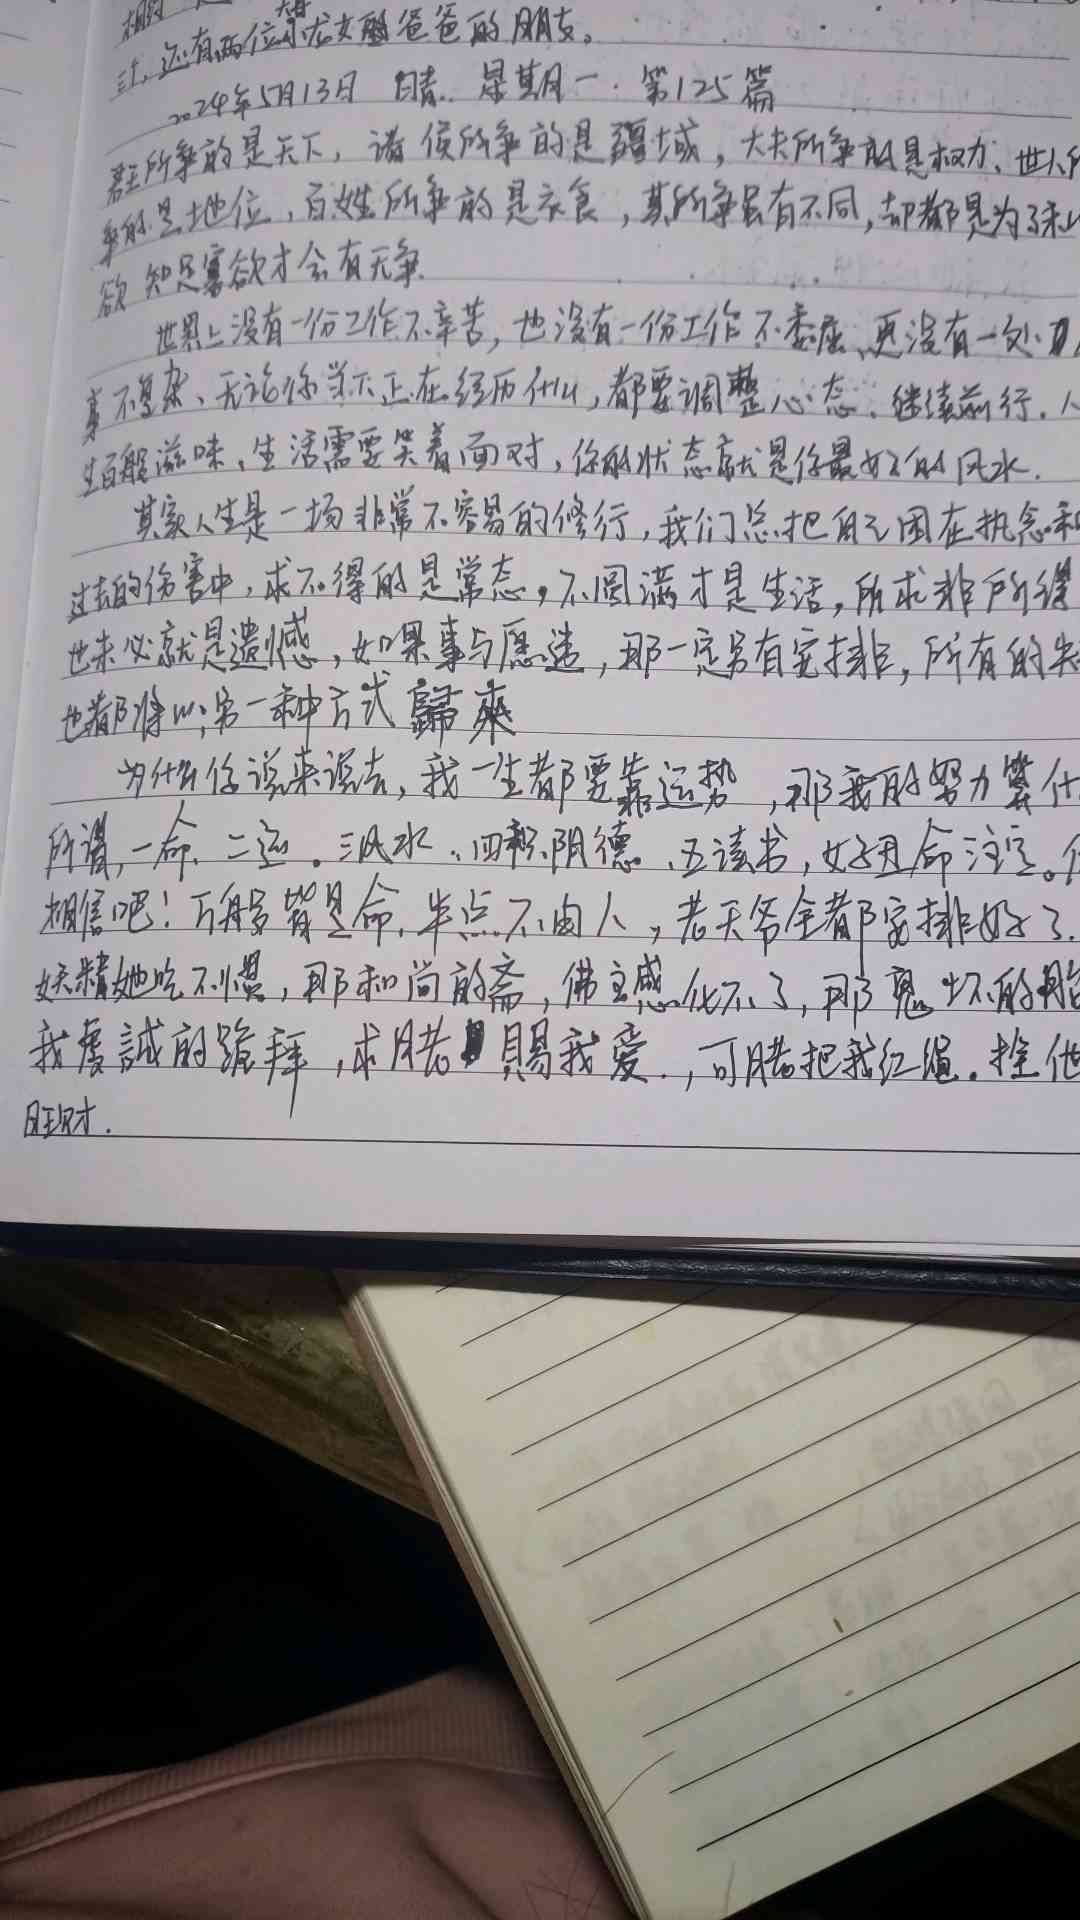 还有两位 女朋爸爸的朋友。
2024年5月13日 晴. 星期一. 第125篇
君王所争的是天下，诸侯所争的是疆域，大夫所争的是权力、世人所
争的是地位，百姓所争的是衣食，其所争虽有不同，却都是为了
欲 知足寡欲才会有无争
世界上没有一份工作不辛苦，也没有一份工作不委屈、更没有一处
事不复杂、无论你当下正在经历什么，都要调整心态、继续前行.人
生百般滋味、生活需要笑着面对，你的状态就是你最好的风水.
其实人生是一场非常不容易的修行，我们总把自己困在执念和
过去的伤害中，求不得的是常态，不圆满才是生活，所求非所得
也未必就是遗憾，如果事与愿违，那一定另有安排，所有的失
也都将以另一种方式歸來
为什么你说来说去，我一生都要靠运势，那我的努力算什
所谓，一命、二运。三风水、四积阴德、五读书，好丑命注定。
相信吧！万般皆是命.半点不由人，老天爷全都安排好了.
妖精她吃不惯，那和尚的斋，佛主感化不了，那鬼 怀的胎
我虔誠的跪拜，求月老 賜我爱.，可月老把我红绳。拴他
旺财.